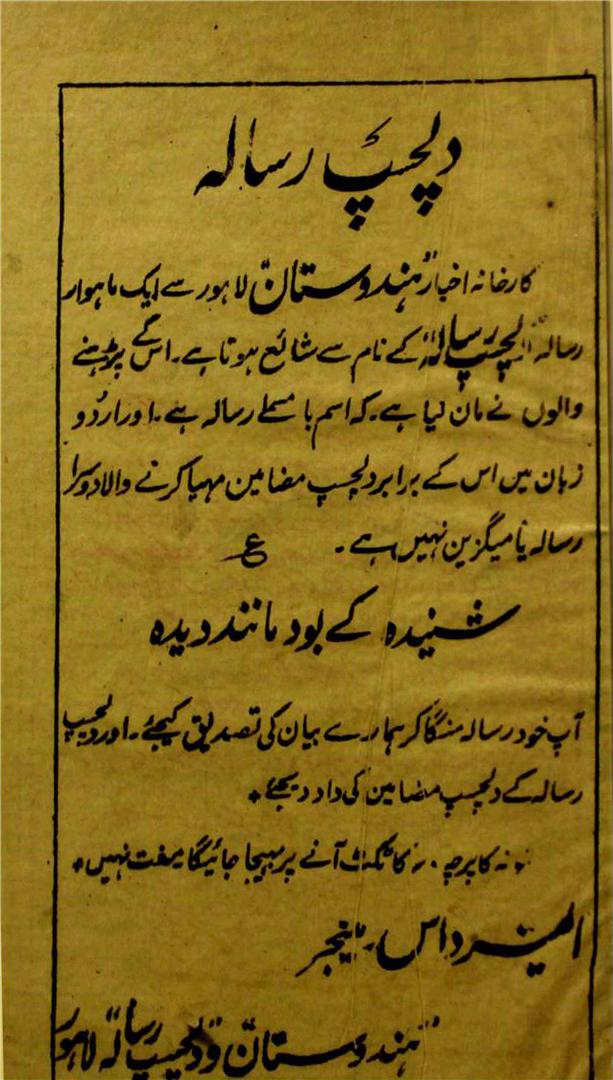 دلچسپ رسالہ
کارخانہ اخبار "ہندوستان" لاہور سے ایک ماہوار
رسالہ "دلچسپ رسالہ" کے نام سے شائع ہوتا ہے۔ اس کے پڑہنے
والوں نے مان لیا ہے۔ کہ اسم بامسمےٰ رسالہ ہے۔ اور اردو
زبان میں اس کے برابر دلچسپ مضامین مہیا کرنے والا دوسرا
رسالہ یا میگزین نہیں ہے۔ ع
شنیدہ کے بود مانند دیدہ
آپ خود رسالہ منگا کر ہمارے بیان کی تصدیق کیجئے۔ اور دلچسپ
رسالہ کے دلچسپ مضامین کی داد دیجئے٭
نمونہ کا پرچہ ۰ر کا ٹکٹ آنے پر بہیجا جائیگا مفت نہیں٭
داس۔ مینجر
"ہندوستان" و "دلچسپ رسالہ" لاہور